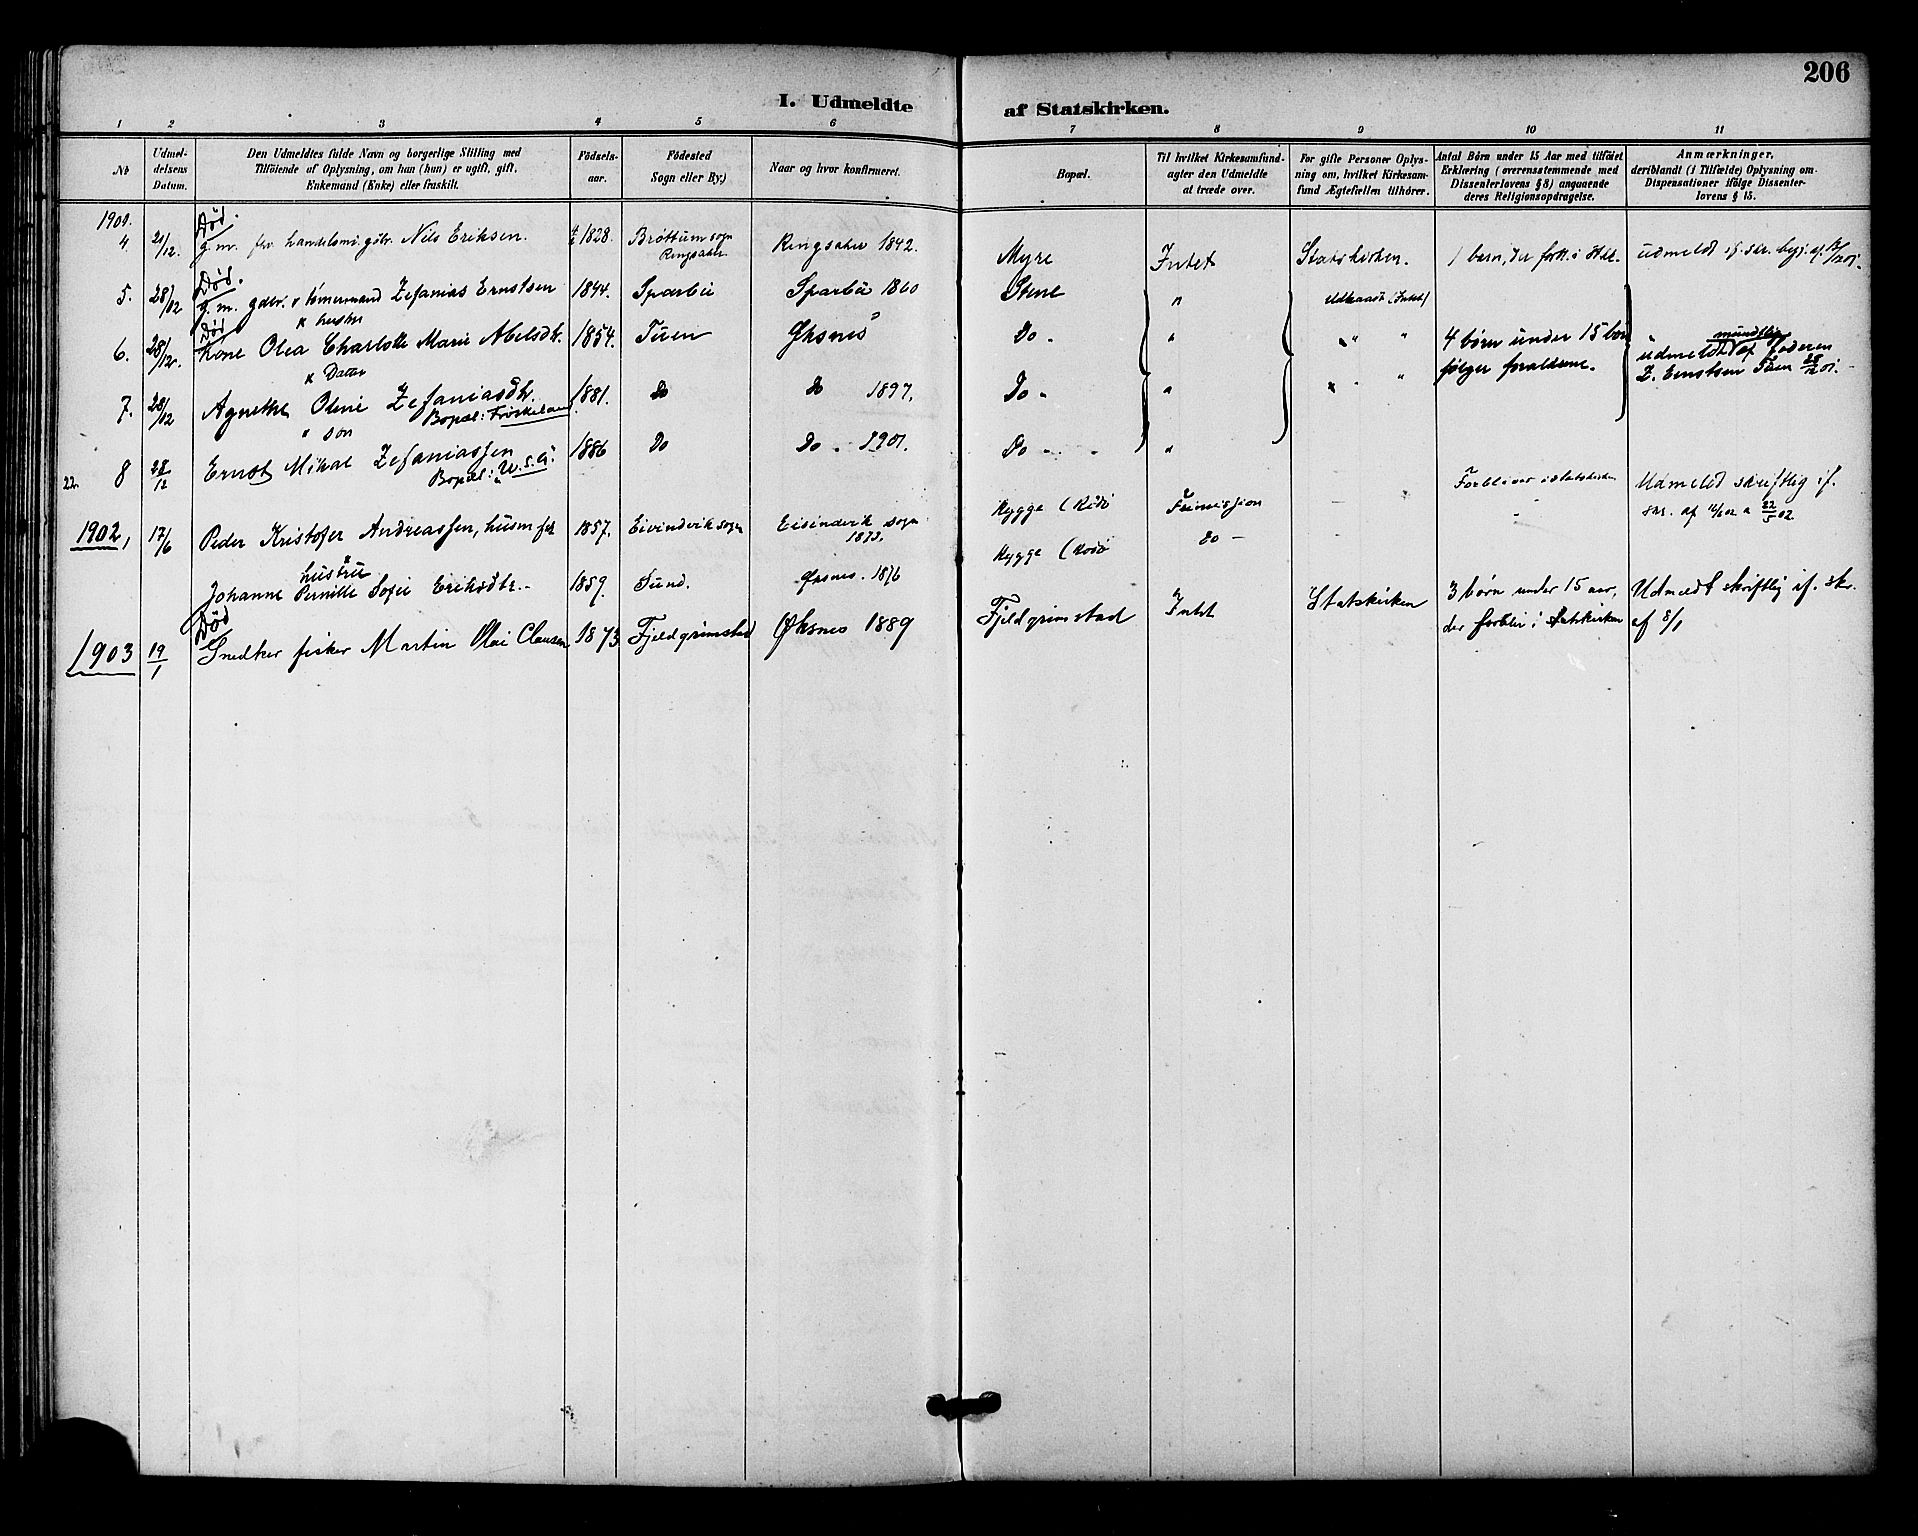 206
I. Udmeldte af Statskirken.
1 2 3 4 5 6 7 8 9 10 11
No
Udmel-
delsens
Datum.
Den Udmeldtes fulde Navn og borgerlige Stilling med
Tilföiende af Oplysning, om han (hun) er ugift, gift,
Enkemand (Enke) eller fraskilt.
Födsels-
aar.
Födested
Sogn eller By.)
Naar og hvor konfirmeret.
Bopæl.
Til hvilket Kirkesamfund-
agter den Udmeldte
at træde over.
For gifte Personer Oplys-
ning om, hvilket Kirkesam-
fund Ægtefællen tilhörer.
Antal Börn under 15 Aar med tilföiet
Erklæring (overensstemmende med
Dissenterlovens § 8) angaaende
deres Religionsopdragelse.
Anmærkninger,
deriblandt (i Tilfælde) Oplysning om
Dispensationer ifölge Dissenter-
lovens § 15.
1901.
Død.
4 21/12. g. m. Nils Eriksen. 1828. Brøttum sogn Ringsaker Ringsaker 1842. Myre Intet Statskirken. 1 barn,
Død.
5. 28/12 g. m. tømermand Zefanias Ernstsen 1844. Sparbu Sparbu 1860 Stene " (Intet)
Død hustru
6. 28/12. Kone Olea Charlotte Marie Abelsdtr. 1854. Tuen Øksnes Do. " " " 4 børn under 15
følger foraldrene. udmeldt mundtlig af Faderen
Z. Ernstsen Tuen 28/12 01.
Datter
7. 28/12 Agnethe Oline Zefaniasdtr. 1881. Do Do 1897. Do. " "
Bopæl: Frøskeland.
" søn
8 28/12 Ernst Mikal Zefaniassen 1886 Do Do. 1901. Do "
Bopæl: U. S. A.
22.
1902, 17/6 Peder Kristofer Andreassen, husm 1857. Eivindvik sogn Eivindvik sogn 1873. Hygge Frimission - Forbliver i statskirken Udmeldt skriftlig if.
skr. af
hustru
Johanne Pernille Sofie Eriksdtr. 1859. Sund. Øksnes. 1876 Hygge do -
Død
1903 19/1 Snedker fisker Martin Olai Clausen 1873 Fjeldgrimstad Øksnes 1889 Fjeldgrimstad Intet Statskirken 3 børn under 15 aar, Udmeldt skriftlig if. skr.
der forbli i statskirken af 8/1